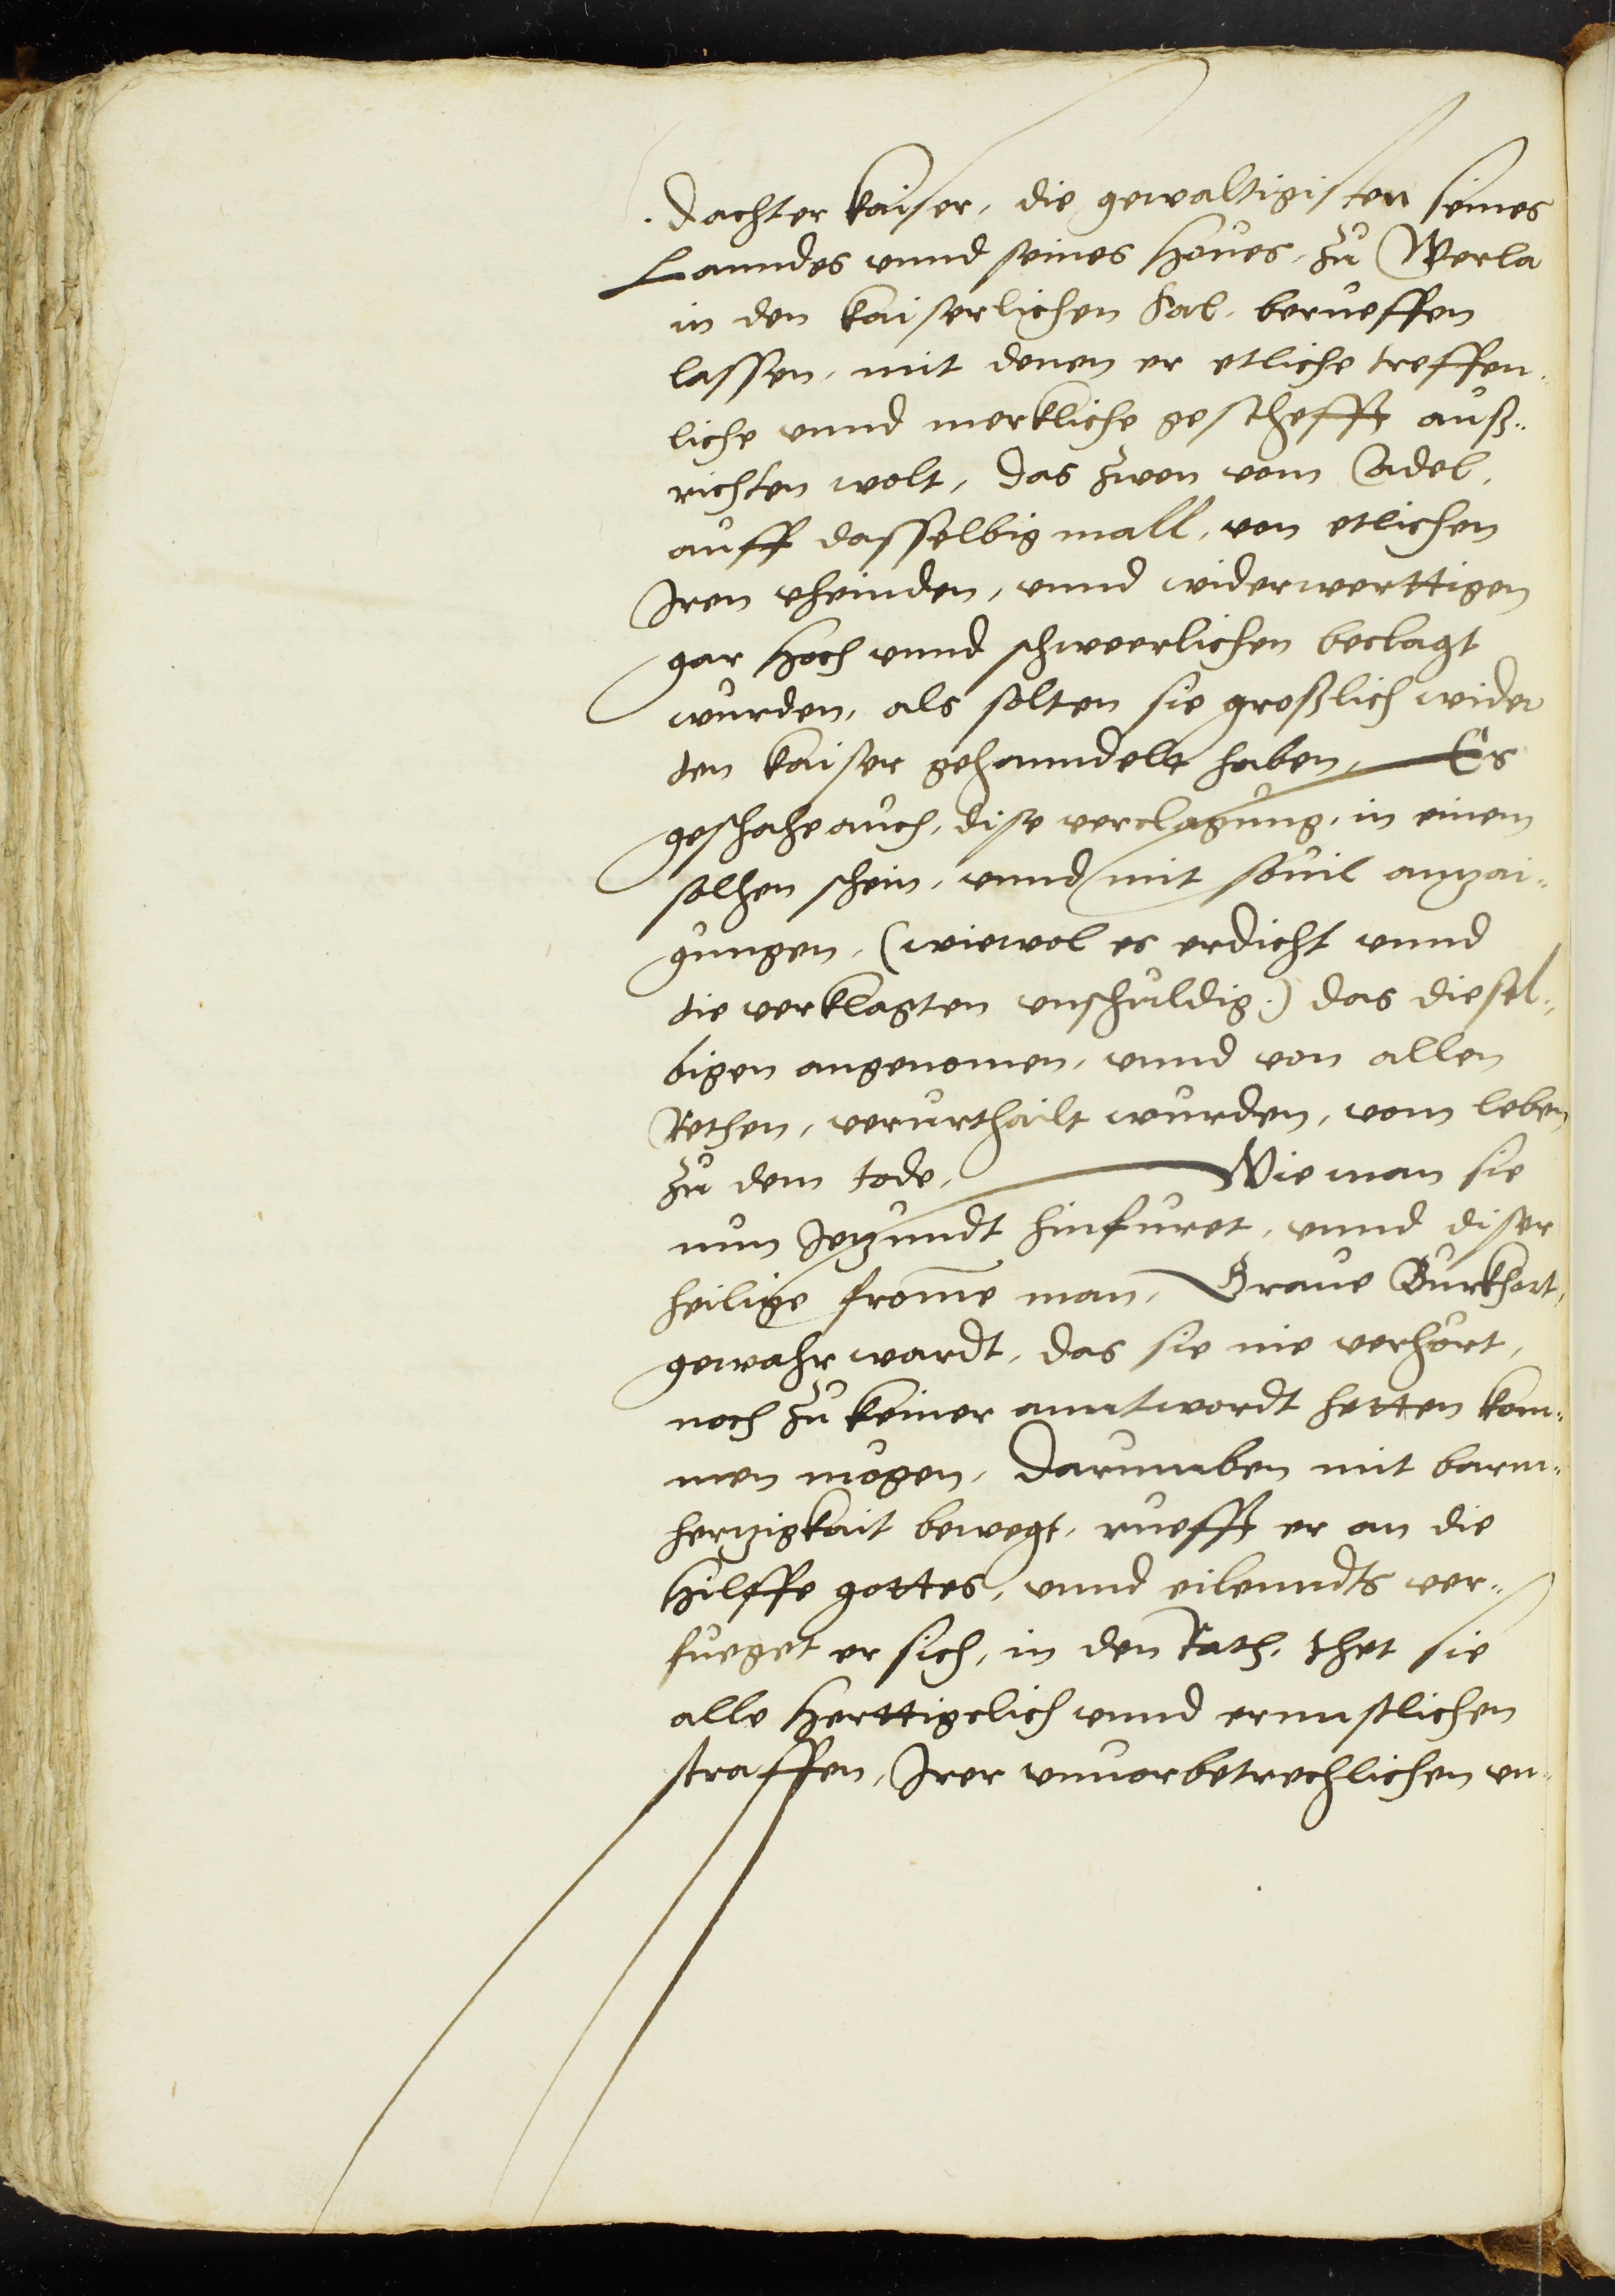 dachter kaiser, die gewaltigisten seines
Lanndes vnnd seines Houes, zu Werla
in den kaiserlichen Sal, berueffen
lassen, mit denen er etliche treffen¬
liche vnnd merkliche geschefft auß¬
richten wolt, das zwen vom Adel,
auff dasselbig mall, von etlichen
Iren vheinden, vnnd widerwerttigen
gar hoch vnnd schweerlichen beclagt
wurden, als solten sie großlich wider
den kaiser gehanndelt haben, Es
geschahe auch, dise verclagung, in einem
solhen schein, vnnd mit souil anzai¬
gungen, (wiewol es erdicht vnnd
die verklagten vnschuldig.) das diesel¬
bigen angenomen, vnnd von allen
Rethen, verurthailt wurden, vom leben
zu dem tode, Wie man sie
nun Jezundt hinfuret, vnnd diser
heilige frome̅ man, Graue Burkhart,
gewahr wardt, das sie nie verhört,
noch zu keiner anntwordt hetten kom¬
men mögen, Darumben mit barm¬
herzigkait bewegt, ruefft er an die
Hilffe gottes, vnnd eilenndts ver¬
fueget er sich, in den Rath, thet sie
alle Herttigclich vnnd ernnstlichen
straffen, Irer vnuorbetrechlichen vn¬